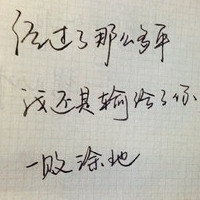 经过了那么多年
我还是输给了你
一败涂地